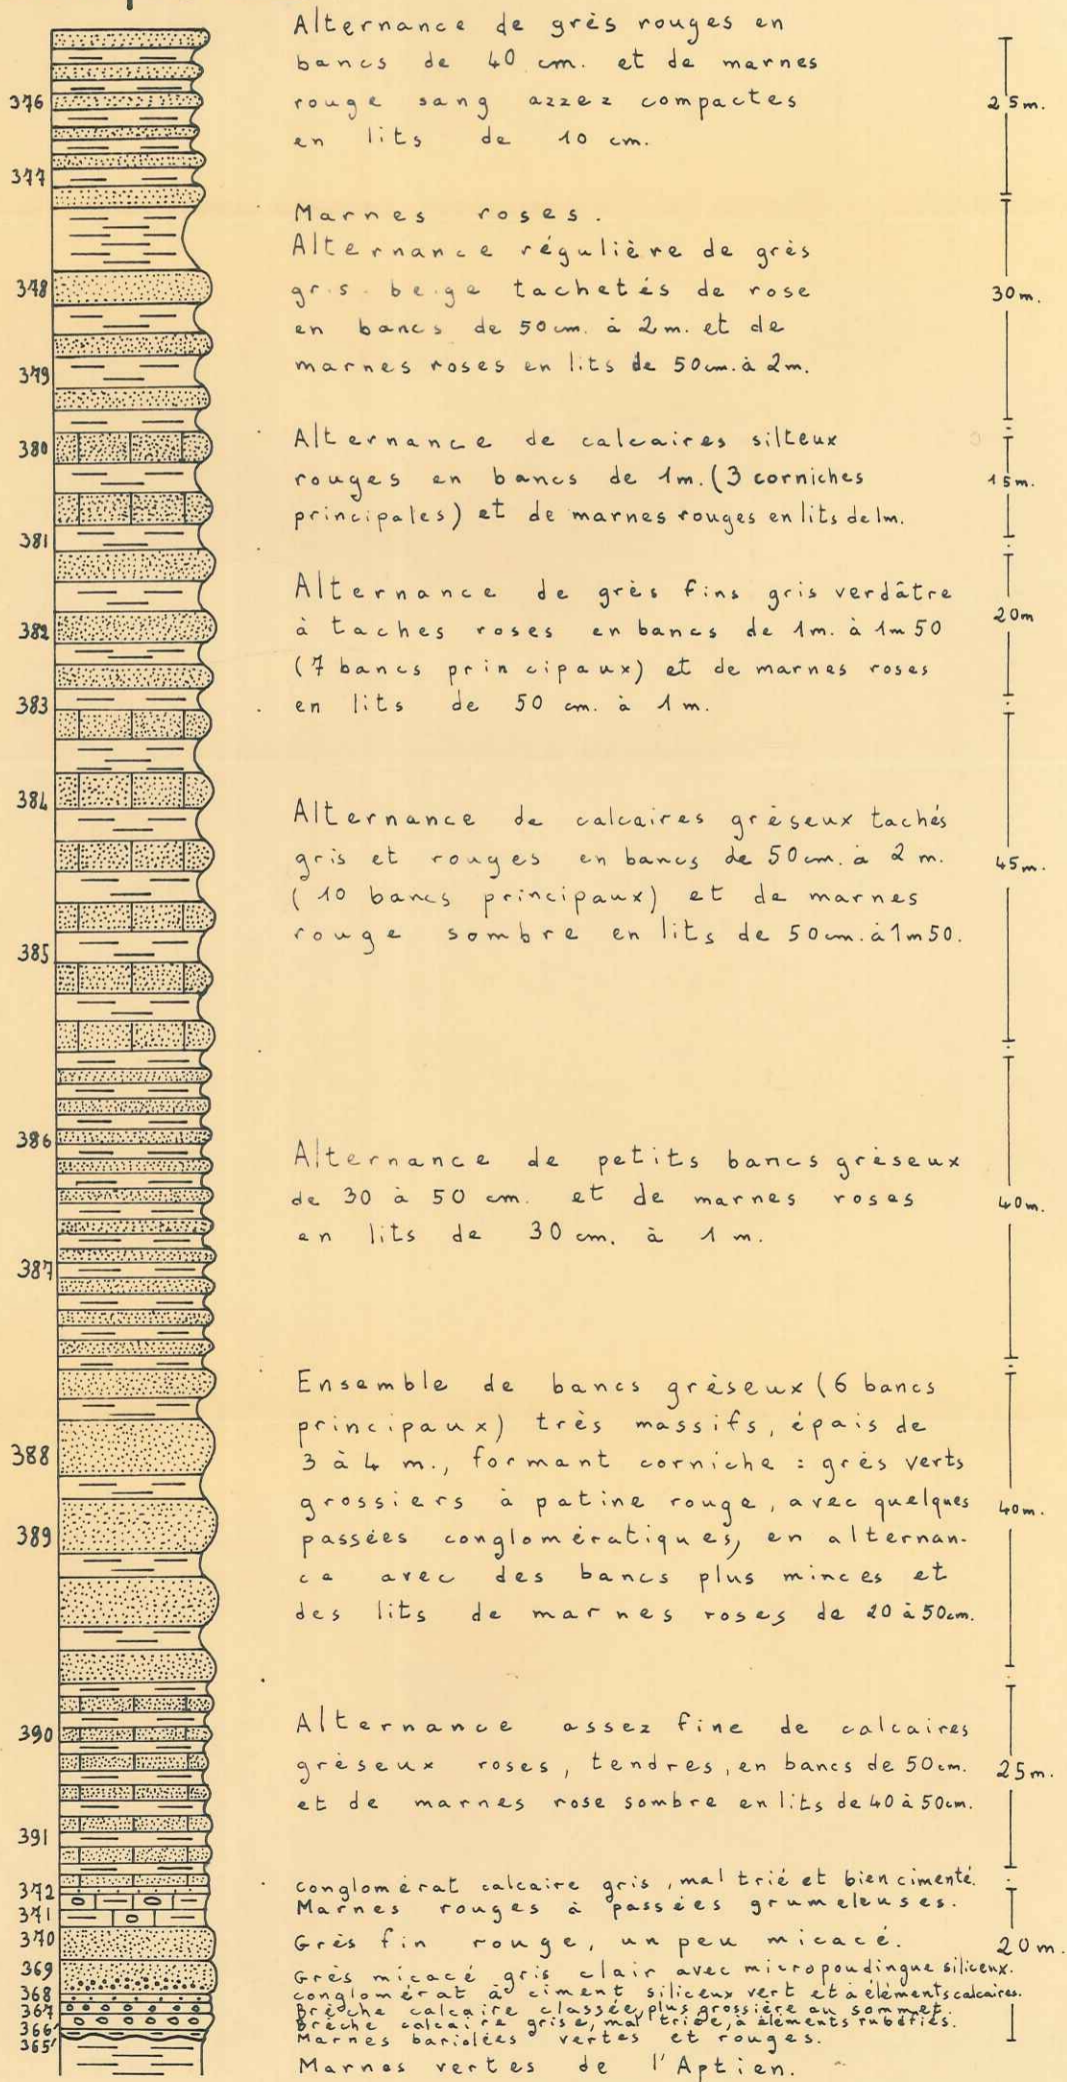 Alternance de grès rouges en
bancs de 40 cm. et de marnes
376 rouge sang azzez compactes 25m.
en lits de 10 cm.
377
Marnes roses.
Alternance régulière de grès
378 gris beige tachetés de rose 30m.
en bancs de 50cm. à 2m. et de
379 marnes roses en lits de 50cm. à 2m.
380 Alternance de calcaires silteux
rouges en bancs de 1m. (3 corniches 15m.
principales) et de marnes rouges en lits de 1m.
381
Alternance de grès fins gris verdâtre
382 à taches roses en bancs de 1m. à 1m50 20m
(7 bancs principaux) et de marnes roses
383 en lits de 50 cm. à 1m.
384 Alternance de calcaires gréseux tachés
gris et rouges en bancs de 50cm. à 2 m. 45m.
(10 bancs principaux) et de marnes
385 rouge sombre en lits de 50cm. à 1m50.
386 Alternance de petits bancs gréseux
de 30 à 50 cm. et de marnes roses 40m.
en lits de 30 cm. à 1 m.
387
Ensemble de bancs gréseux (6 bancs
principaux) très massifs, épais de
388 3 à 4 m., formant corniche : grès verts
grossiers à patine rouge, avec quelques 40m.
389 passées conglomératiques, en alternan-
ce avec des bancs plus minces et
des lits de marnes roses de 20 à 50cm.
390 Alternance assez fine de calcaires
gréseux roses, tendres, en bancs de 50cm. 25m.
et de marnes rose sombre en lits de 40 à 50cm.
391
372 Conglomérat calcaire gris, mal trié et bien cimenté.
371 Marnes rouges à passées grumeleuses.
370 Grès fin rouge, un peu micacé. 20m.
369 Grès micacé gris clair avec micropoudingue siliceux.
368 conglomérat à ciment siliceux vert et à éléments calcaires.
367 Brèche calcaire classée, plus grossière au sommet.
366 Brèche calcaire grise, mal triée, à éléments rubéfiés.
365 Marnes bariolées vertes et rouges.
Marnes vertes de l'Aptien.